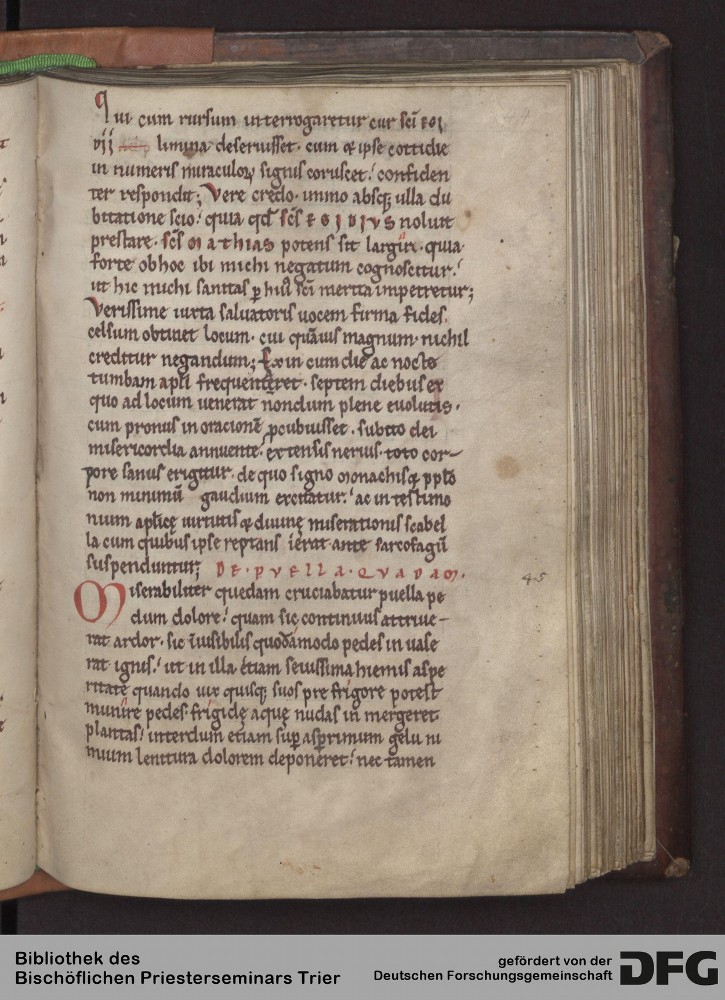 Qui cum rursum interrogaretur cur scī EGI
DII limina deseruisset. cum & ipse cottidie
in numeris miraculoꝝ signis coruscet. confiden
ter respondit; Vere credo. immo absq; ulla du
bitatione scio. quia qd̄ scs̄ EGIDIVS noluit
prestare. scs̄ MATHIAS potens sit largiri. quia
forte ob hoc ibi michi negatum cognoscitur.
ut hic michi sanitas ꝑ hui' scī merita impetretur;
Verissime iuxta saluatoris uocem firma fides.
celsum obtinet locum. cui quāuis magnum. nichil
creditur negandum; Exin cum die ac nocte
tumbam apl̄i frequentaret. septem diebus ex
quo ad locum uenerat nondum plene euolutis.
cum pronus in orationē ꝓcubuisset. subito dei
misericordia annuente. extensis neruis. toto cor-
pore sanus erigitur. de quo signo monachisq; ppl̄o
non minimū gaudium excitatur. ac in testimo
nium apl̄icę uirtutis & diuinę miserationis scabel
la cum quibus ipse reptans ierat ante sarcofagū
suspenduntur; DE. PVELLA. QVADAM.
Miserabiliter quedam cruciabatur puella pe
dum dolore. quam sic continuus attriue-
rat ardor. sic īuisibilis quodāmodo pedes in uase
rat ignis. ut in illa etiam seuissima hiemis aspe
ritate quando uix quisq; suos pre frigore potest
munire pedes. frigidę aquę nudas in mergeret
plantas. interdum etiam suꝑ asꝑrimum gelu ni
mium lenitura dolorem deponeret. nec tamen
45
Bibliothek des
Bischöflichen Priesterseminars Trier
gefördert von der
Deutschen Forschungsgemeinschaft
DFG